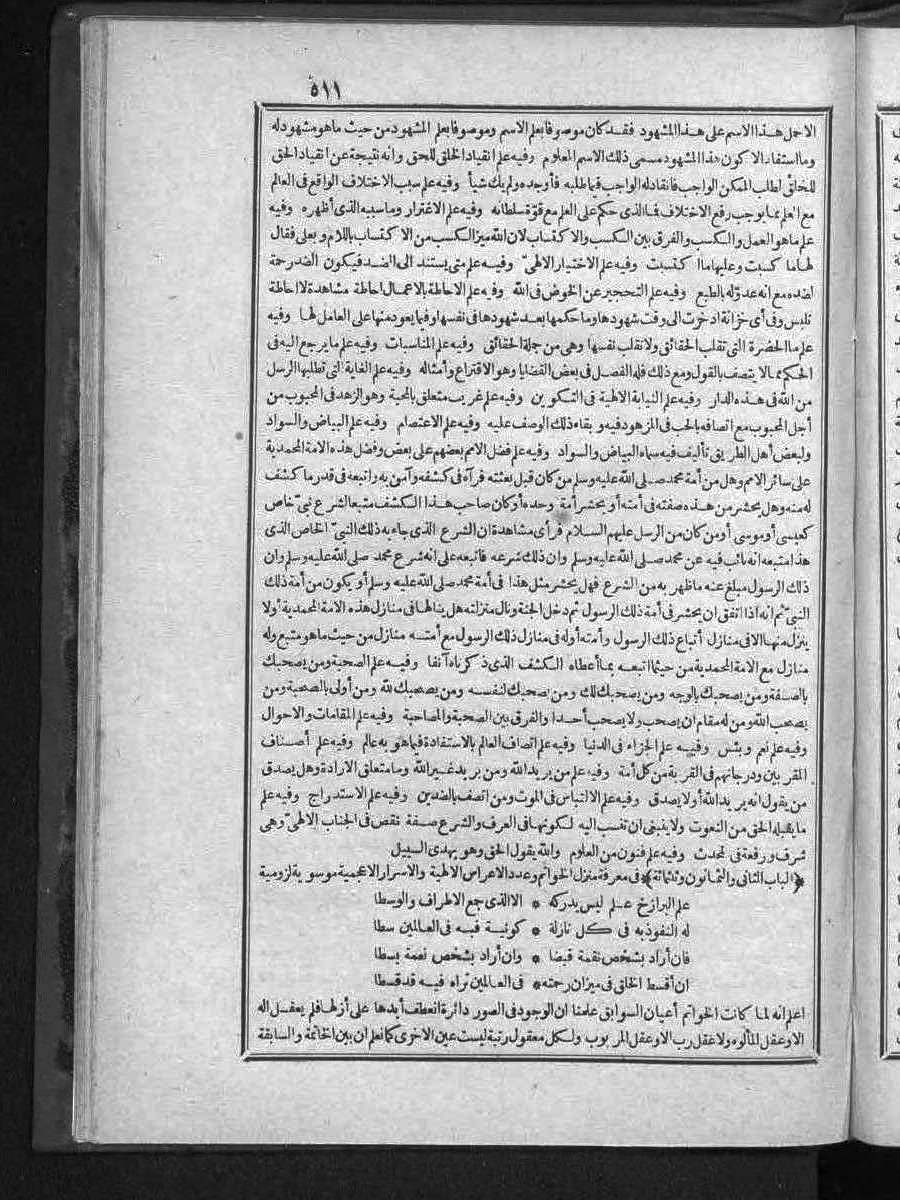 ٥١١
الاحل هذا الاسم على هذا المشهود فقد كان موصوفا بعلم الاسم وموصوفا بعلم المشهود من حيث ما هو مشهود له
وما استفاد الا كون هذا المشهود مسمى ذلك الاسم المعلوم وفيه علم انقياد الخلق للحق وانه نتيجة عن انقياد الحق
للخلق لطلب الممكن الواجب فانقاد له الواجب فيما طلبه فأوجده ولم يك شيأ وفيه علم سبب الاختلاف الواقع فى العالم
مع العلم بما يوجب رفع الاختلاف فما الذى حكم على العلم مع قوّة سلطانه وفيه علم الاغترار وما سببه الذى أظهره وفيه
علم ما هو العمل والكسب والفرق بين الكسب والاكتساب لان الله ميز الكسب من الاكتساب باللام وبعلى فقال
لها ما كسبت وعليها ما اكتسبت وفيه علم الاختيار الالهىّ وفيه علم متى يستند الى الضد فيكون الضد رحمة
لضده مع انه عدوّ له بالطبع وفيه علم التحجير عن الخوض فى الله وفيه علم الاحاطة بالاعمال احاطة مشاهدة لا احاطة
تلبس وفى أى خزانة ادخرت الى وقت شهودها وما حكمها بعد شهودها فى نفسها وفيما يعود منها على العامل لها وفيه
علم ما الحضرة التى تقلب الحقائق ولا تقلب نفسها وهى من جملة الحقائق وفيه علم المناسبات وفيه علم ما يرجع اليه فى
الحكم مما لا يتصف بالقول ومع ذلك فله الفصل فى بعض القضايا وهو الاقتراع وأمثاله وفيه علم الغاية التى تطلبها الرسل
من الله فى هذه الدار وفيه علم النيابة الالهية فى التكوين وفيه علم غريب متعلق بالمحبة وهو الزهد فى المحبوب من
أجل المحبوب مع اتصافه بالحب فى المزهود فيه وبقاء ذلك الوصف عليه وفيه علم الاعتصام وفيه علم البياض والسواد
ولبعض أهل الطريق تأليف فيه سماه البياض والسواد وفيه علم فضل الامم بعضهم على بعض وفضل هذه الامة المحمدية
على سائر الامم وهل من أمة محمد صلى الله عليه وسلم من كان قبل بعثته فرآه فى كشفه وآمن به واتبعه فى قدر ما كشف
له منه وهل يحشر من هذه صفته فى أمته أو يحشر أمة وحده أو كان صاحب هذا الكشف متبعا لشرع نبىّ خاص
كعيسى أو موسى أو من كان من الرسل عليهم السلام فرأى مشاهدة ان الشرع الذى جاء به ذلك النبىّ الخاص الذى
هذا متبعه انه نائب فيه عن محمد صلى الله عليه وسلم وان ذلك شرعه فاتبعه على انه شرع محمد صلى الله عليه وسلم وان
ذلك الرسول مبلغ عنه ما ظهر به من الشرع فهل يحشر مثل هذا فى أمة محمد صلى الله عليه وسلم أو يكون من أمة ذلك
النبىّ ثم انه اذا اتفق ان يحشر فى أمة ذلك الرسول ثم دخل الجنة ونال منزلته هل ينالها فى منازل هذه الامة المحمدية أولا
ينزل منها الا فى منازل أتباع ذلك الرسول وأمته أوله فى منازل ذلك الرسول مع أمته منازل من حيث ما هو متبع وله
منازل مع الامة المحمدية من حيث ما اتبعه بما أعطاه الكشف الذى ذكرناه آنفا وفيه علم الصحبة ومن يصحبك
بالصفة ومن يصحبك بالوجه ومن يصحبك لك ومن يصحبك لنفسه ومن يصحبك لله ومن أولى بالصحبة ومن
يصحب الله ومن له مقام ان يصحب ولا يصحب أحدا والفرق بين الصحبة والمصاحبة وفيه علم المقامات والاحوال
وفيه علم نعم وبئس وفيه علم الجزاء فى الدنيا وفيه علم اتصاف العالم بالاستفادة فيما هو به عالم وفيه علم أصناف
المقربين ودرجاتهم فى القربة من كل أمة وفيه علم من يريد الله ومن يريد غير الله وما متعلق الارادة وهل يصدق
من يقول انه يريد الله أولا يصدق وفيه علم الالتباس فى الموت ومن اتصف بالضدين وفيه علم الاستدراج وفيه علم
ما يقبله الحق من النعوت ولا ينبغى ان تنسب اليه لكونها فى العرف والشرع صفة نقص فى الجناب الالهىّ وهى
شرف ورفعة فى المحدث وفيه علم فنون من العلوم والله يقول الحق وهو يهدى السبيل
﴿الباب الثانى والثمانون وثلثمائة﴾ فى معرفة منزل الخواتم وعدد الاعراس الالهية والاسرار الاعجمية موسوية لزومية
علم البرازخ علم ليس يدركه * الا الذى جمع الاطراف والوسطا
له النفوذ به فى كل نازلة * كونية فيه فى العالمين سطا
فان أراد بشخص نقمة قبضا * وان أراد بشخص نعمة بسطا
ان أقسط الخلق فى ميزان رحمته * فى العالمين تراه فيه قد قسطا
اعلم انه لما كانت الخواتم أعيان السوابق علمنا ان الوجود فى الصور دائرة انعطف أبدها على أزلها فلم يعقل اله
الا وعقل المألوه ولا عقل رب الا وعقل المربوب ولكل معقول رتبة ليست عين الاخرى كما نعلم ان بين الخاتمة والسابقة